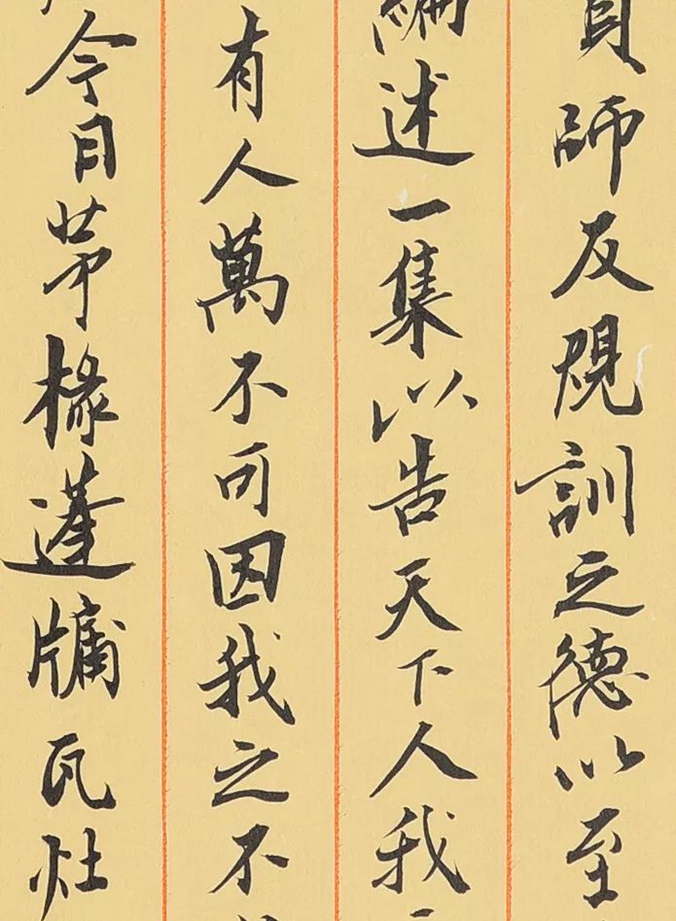 負師反規訓之德以至
編述一集以告天下人我
有人萬不可因我之不
今日茅椽蓬牖瓦灶